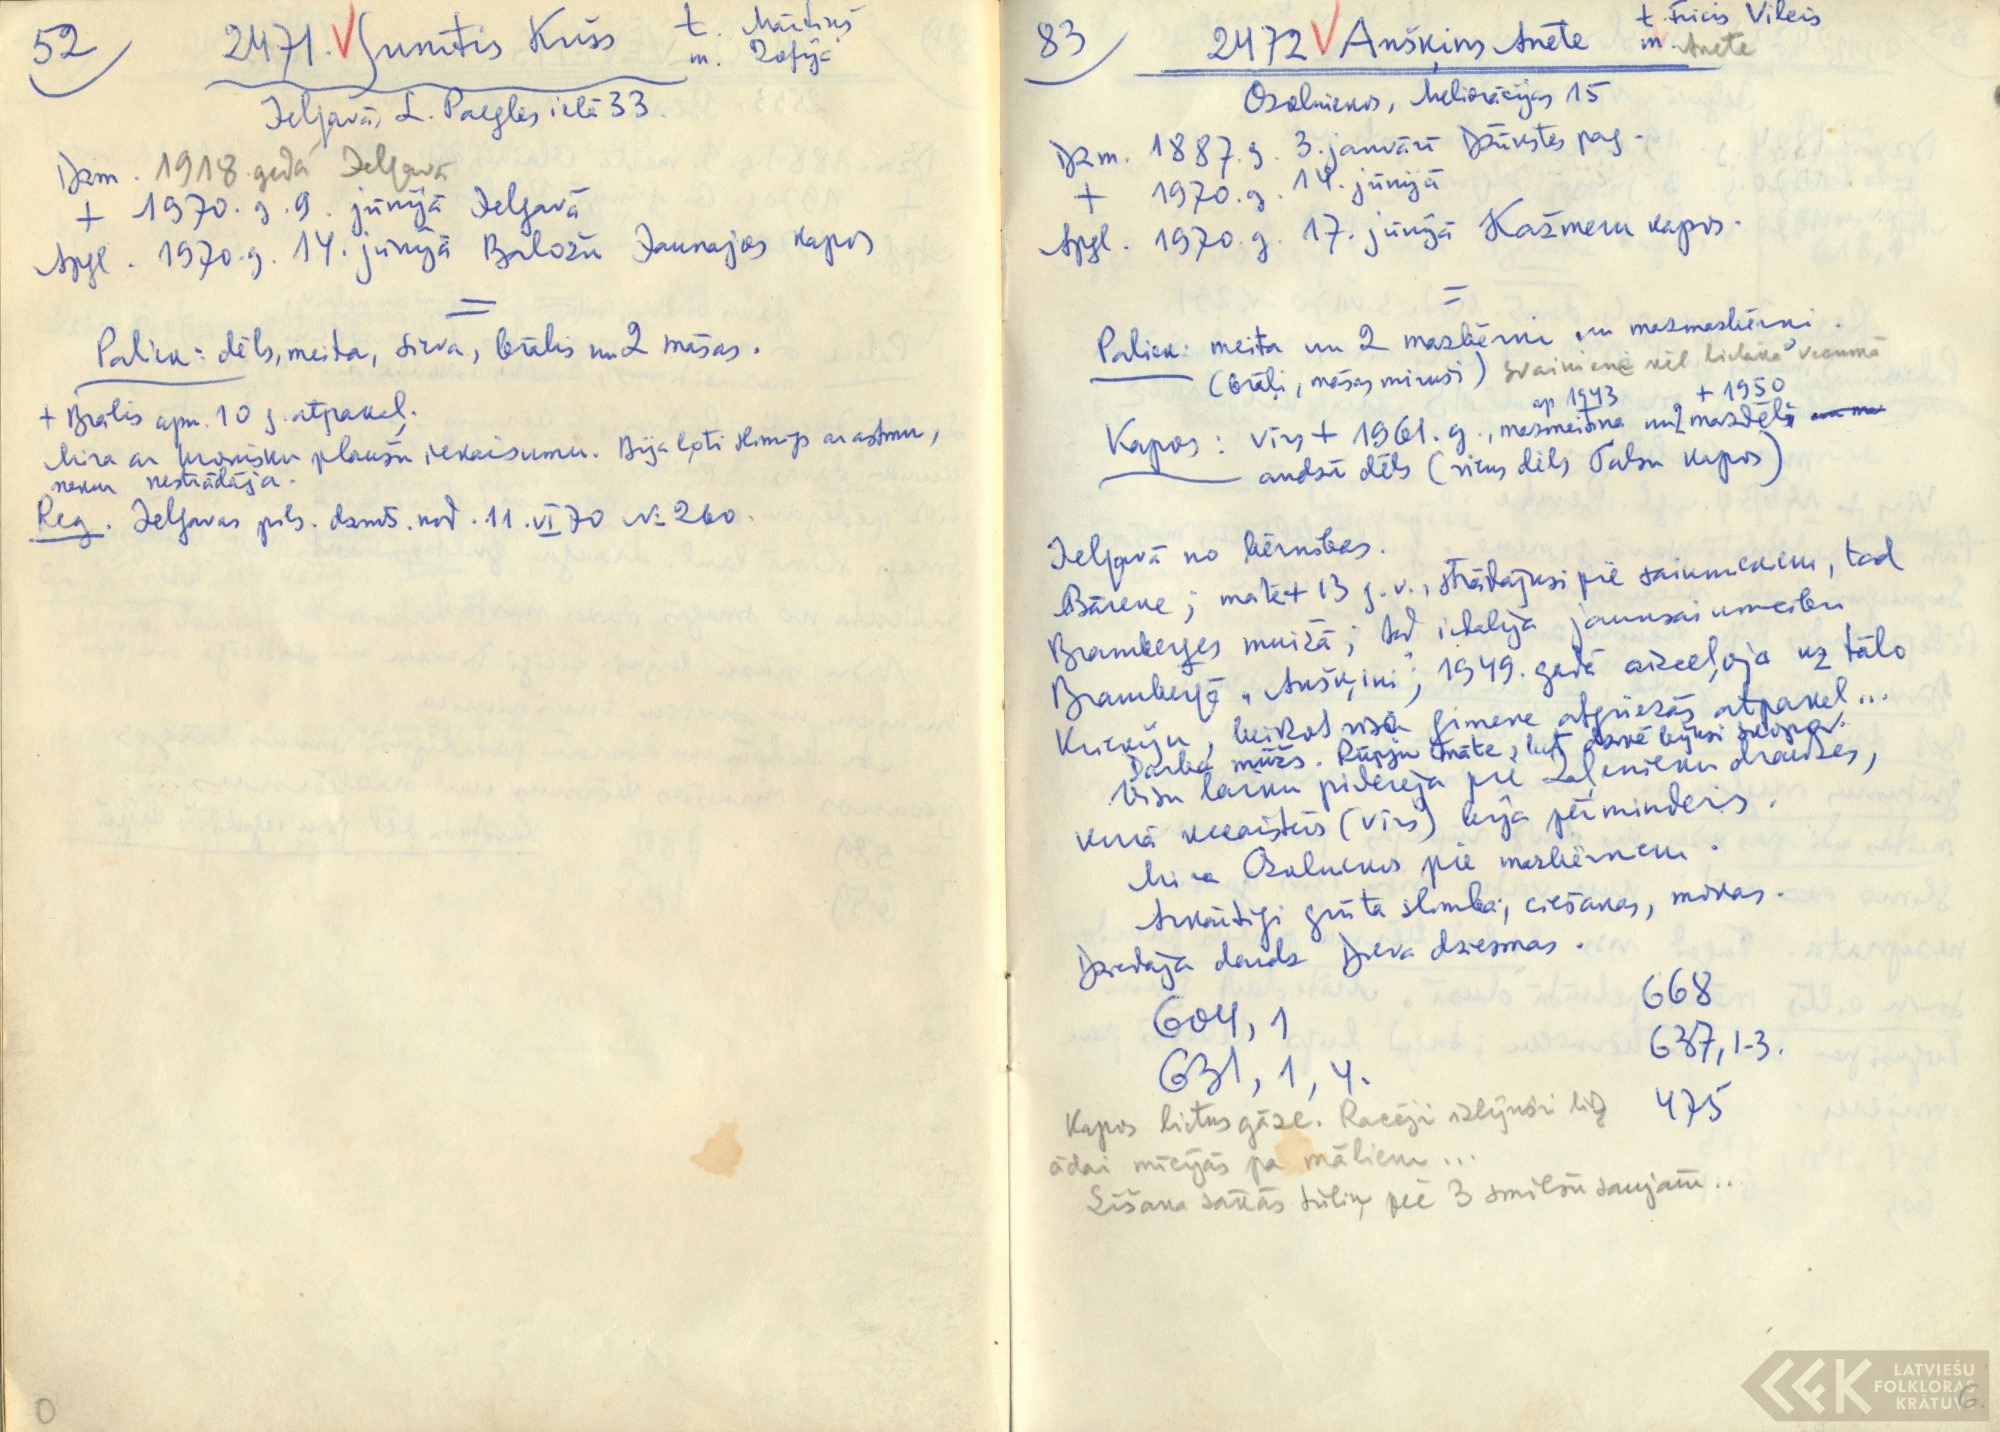 52
2471. V Gumtis Krišs
t. Mārtiņš
m. Zofija
Jelgavā, L. Paegles ielā 33
Dzm. 1918. gadā Jelgavā
+ 1970. g. 9. jūnijā Jelgavā
Apgl. 1970. g. 14. jūnijā Baložu Jaunajos kapos
=
Paliek: dēls, meita, sieva, brālis un 2 māsas.
+ Brālis apm. 10 g. atpakaļ.
Mira ar kronisku plaušu iekaisumu. Bija ļoti slims ar astmu,
nekur nestrādāja.
Reg. Jelgavas pils. dzmts. nod. 11. VI 70 № 260.
0
83
2472 V Anšķins Anete
t. Fricis Vileis
m. Anete
Ozolniekos, Meliorācijas 15
Dzm. 1887. g. 3. janvārī Džūkstes pag.
+ 1970. g. 14. jūnijā
Apgl. 1970. g. 17. jūnijā Kažmeru kapos.
=
Paliek: meita un 2 mazbērni un mazmazbērni.
(brāļi, māsas miruši) Svainiene vēl lielākā vecumā
ap 1943 + 1950
Kapos: vīrs + 1961. g., mazmeitiņa un 2 mazdēli
audžu dēls (viens dēls Talsu kapos)
Jelgavā no bērnības.
Bārene; māte + 13 g. v., strādājusi pie saimniekiem, tad
Bramberges muižā; tad iedalīja jaunsaimniecību
Brambergē "Anšķini", 1949. gadā aizceļoja uz tālo
Krieviju, beidzot visa ģimene atgriezās atpakaļ...
Darba mūžs. Rūpju māte, bet dzīvē bijusi
Visu laiku piderēja pie Zaļenieku draudzes,
kurā aizgājējs (vīrs) bija pērminderis.
Mira Ozolniekos pie mazbērniem.
Ārkārtīgi grūta slimība, ciešanas, mokas.
Dziedāja daudz Dieva dziesmas.
604, 1
668
631, 1, 4.
637, 1-3.
475
Kapos lietus gāze. Racēji izlijuši līdz
ādai mīcījās pa māliem...
Līšana sākās tūliņ pēc 3 smilšu saujām...
LATVIEŠU
FOLKLORAS
KRĀTUVE